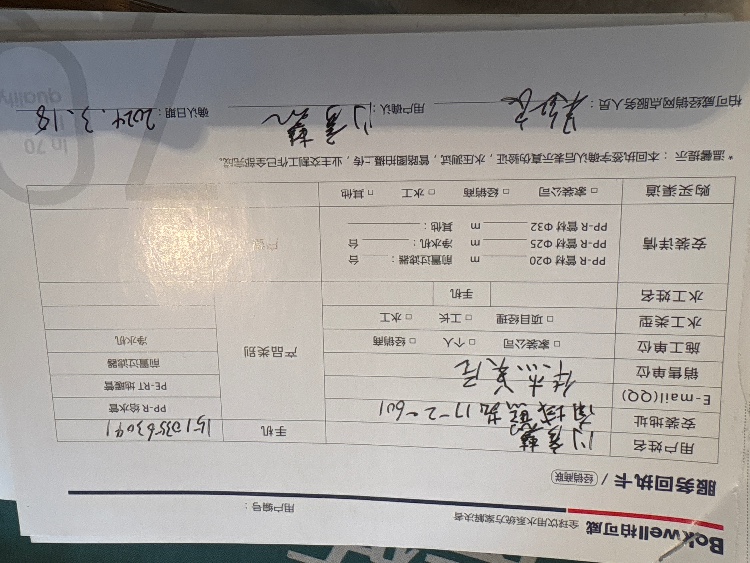 Bokwell柏可威
全球饮用水系统方案解决者
用户编号：
服务回执卡 / 经销商联
用户姓名 手机 151 0356 3091
安装地址 17-2-601 PP-R 给水管
E-mail(QQ) PE-RT 地暖管
销售单位 前置过滤器
施工单位 □ 家装公司 □ 个人 □ 经销商 产品类别 净水机
水工类型 □ 项目经理 □ 工长 □ 水工
水工姓名 手机
安装详情 PP-R 管材 Φ20 m 前置过滤器： 台
PP-R 管材 Φ25 m 净水机： 台
PP-R 管材 Φ32 m 其他：
购买渠道 □ 家装公司 □ 经销商 □ 水工 □ 其他
*温馨提示：本回执签字确认后表示真伪验证，水压测试，管路图拍摄上传，业主交割工作已全部完成。
柏可威经销网点服务人员： 用户确认： 确认日期： 2024.3.18
In 70
quality